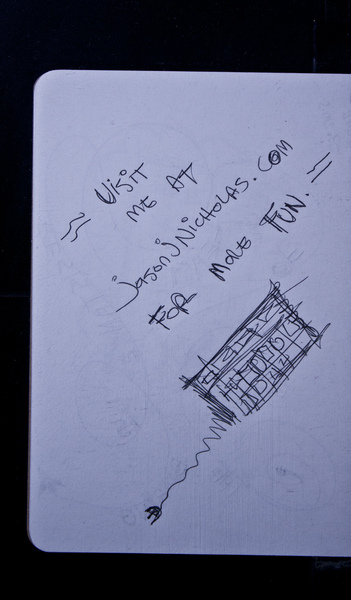 Visit
me at
jasonjNicholas.com
For more Fun.